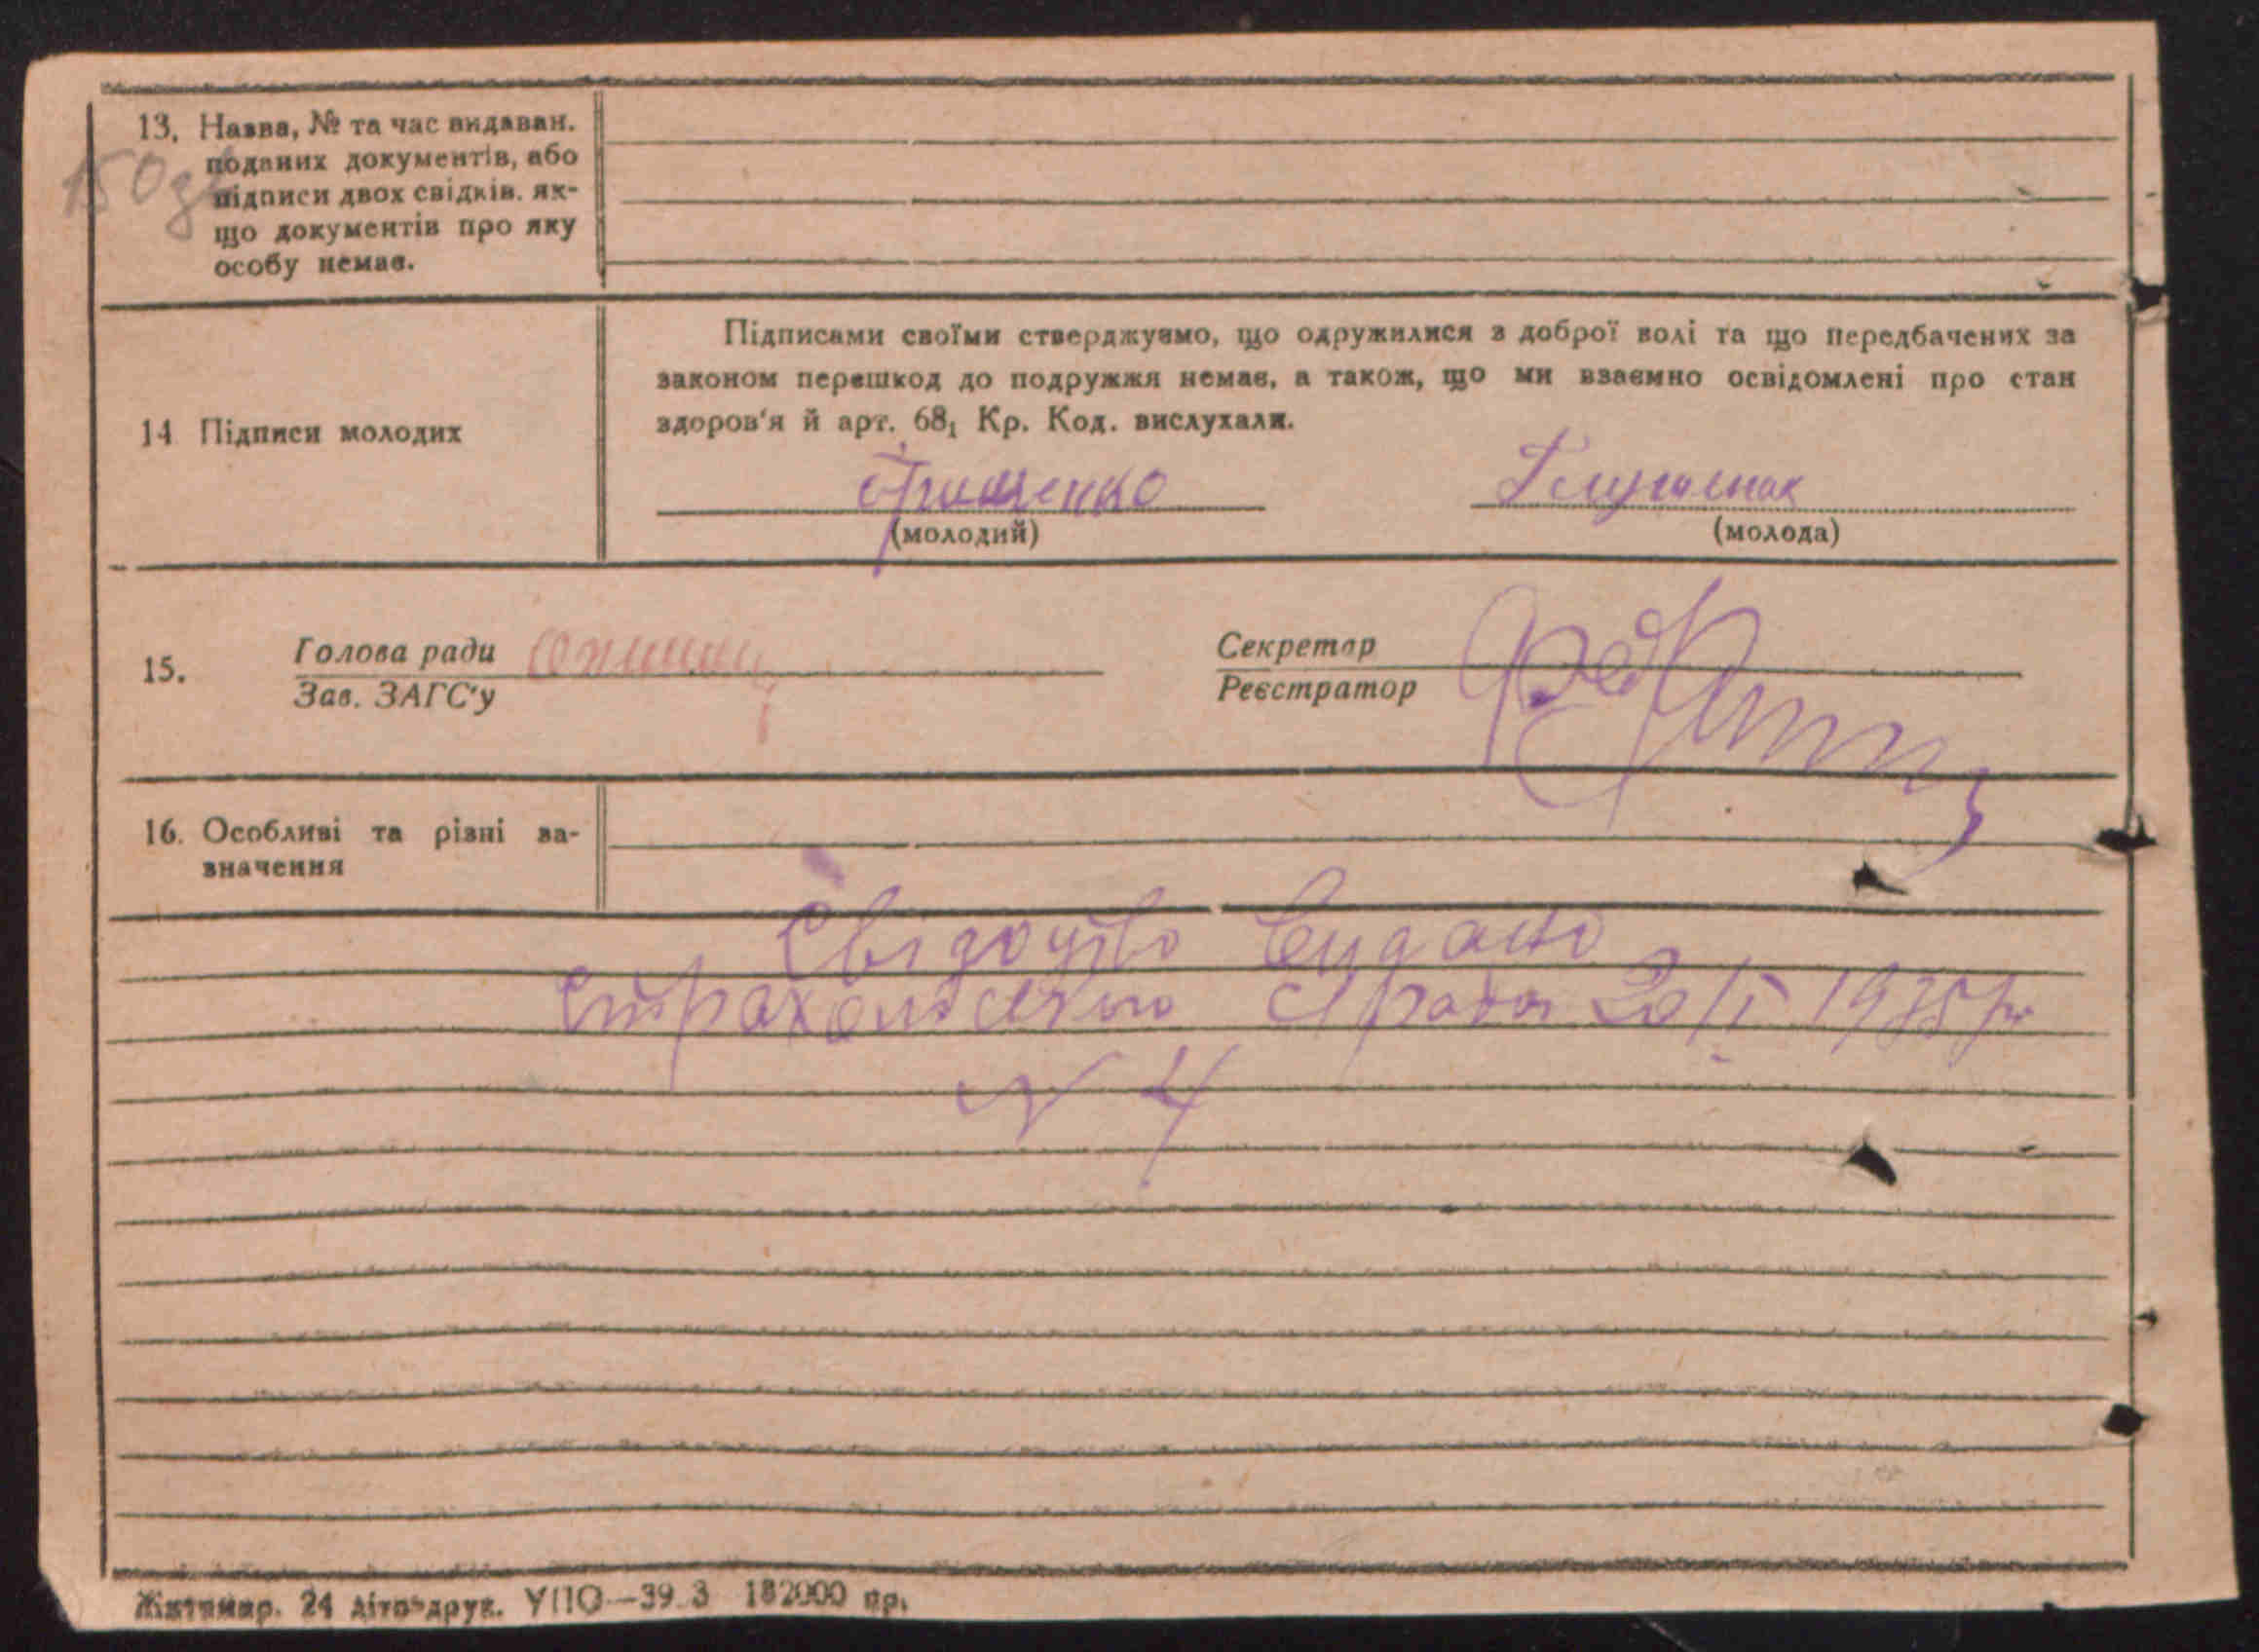 13. Назва, № та час видаван.
поданих документів, або
підписи двох свідків. як-
що документів про яку
особу немає.
150
Підписами своїми стверджуємо, що одружилися з доброї волі та що передбачених за
законом перешкод до подружжя немає, а також, що ми взаємно освідомлені про стан
здоров'я й арт. 68₁ Кр. Код. вислухали.
14 Підписи молодих
Грищенко
(молодий) (молода)
15. Голова ради
Зав. ЗАГС'у
Секретар
Реєстратор
16. Особливі та різні за-
значення
Свідоцтво видано
с/рада 20/I 1935 р
N 4
Житомир. 24 літо-друк. УПО—39.3 182000 пр.